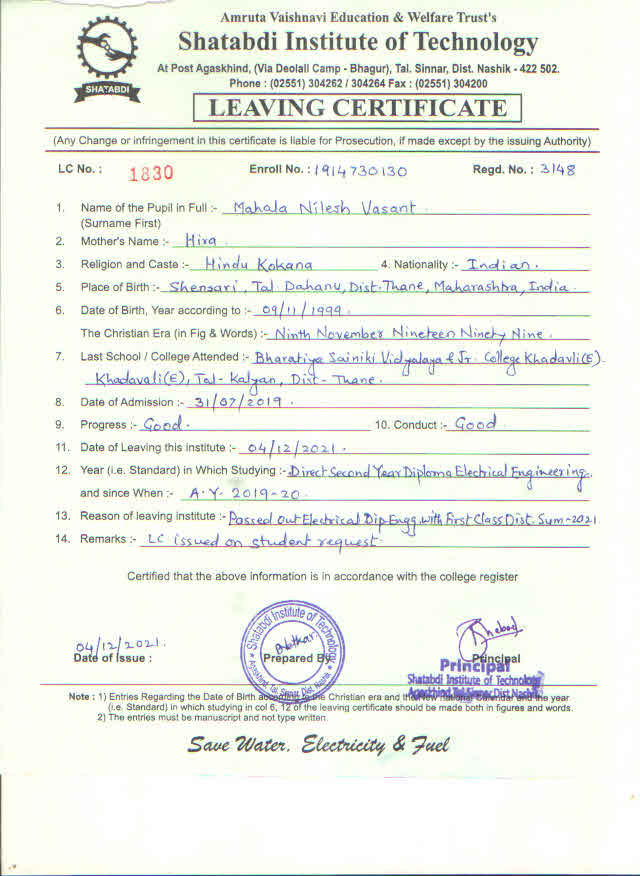 Amruta Vaishnavi Education & Welfare Trust's
Shatabdi Institute of Technology
SHATABDI
At Post Agaskhind, (Via Deolall Camp - Bhagur), Tal. Sinnar, Dist. Nashik - 422 502.
Phone : (02551) 304262 / 304264 Fax : (02551) 304200
LEAVING CERTIFICATE
(Any Change or infringement in this certificate is liable for Prosecution, if made except by the issuing Authority)
LC No. : 1830 Enroll No. : 1914730130 Regd. No. : 3148
1. Name of the Pupil in Full :- Mahala Nilesh Vasant.
(Surname First)
2. Mother's Name :- Hira.
3. Religion and Caste :- Hindu Kokana 4. Nationality :- Indian.
5. Place of Birth :- Shensari, Tal. Dahanu, Dist. Thane, Maharashtra, India.
6. Date of Birth, Year according to :- 09/11/1999.
The Christian Era (in Fig & Words) :- Ninth November Nineteen Ninety Nine.
7. Last School / College Attended :- Bharatiya Sainiki Vidyalaya & Jr. College Khadavli(E).
Khadavali(E), Tal- Kalyan, Dist- Thane.
8. Date of Admission :- 31/07/2019.
9. Progress :- Good. 10. Conduct :- Good.
11. Date of Leaving this institute :- 04/12/2021.
12. Year (i.e. Standard) in Which Studying :- Direct Second Year Diploma Electrical Engineering.
and since When :- A.Y. 2019-20.
13. Reason of leaving institute :- Passed Out Electrical Dip Engg. with First Class Dist. Sum-2021
14. Remarks :- LC issued on student request.
Certified that the above information is in accordance with the college register
04/12/2021.
Date of Issue : Prepared By Principal
Shatabdi Institute of Technology
Agaskhind, Tal. Sinnar, Dist. Nashik
Principal
Shatabdi Institute of Technology
Agaskhind Tal. Sinnar Dist Nashik
Note : 1) Entries Regarding the Date of Birth according to the Christian era and the new national Calendar and the year
(i.e. Standard) in which studying in col 6, 12 of the leaving certificate should be made both in figures and words.
2) The entries must be manuscript and not type written.
Save Water, Electricity & Fuel